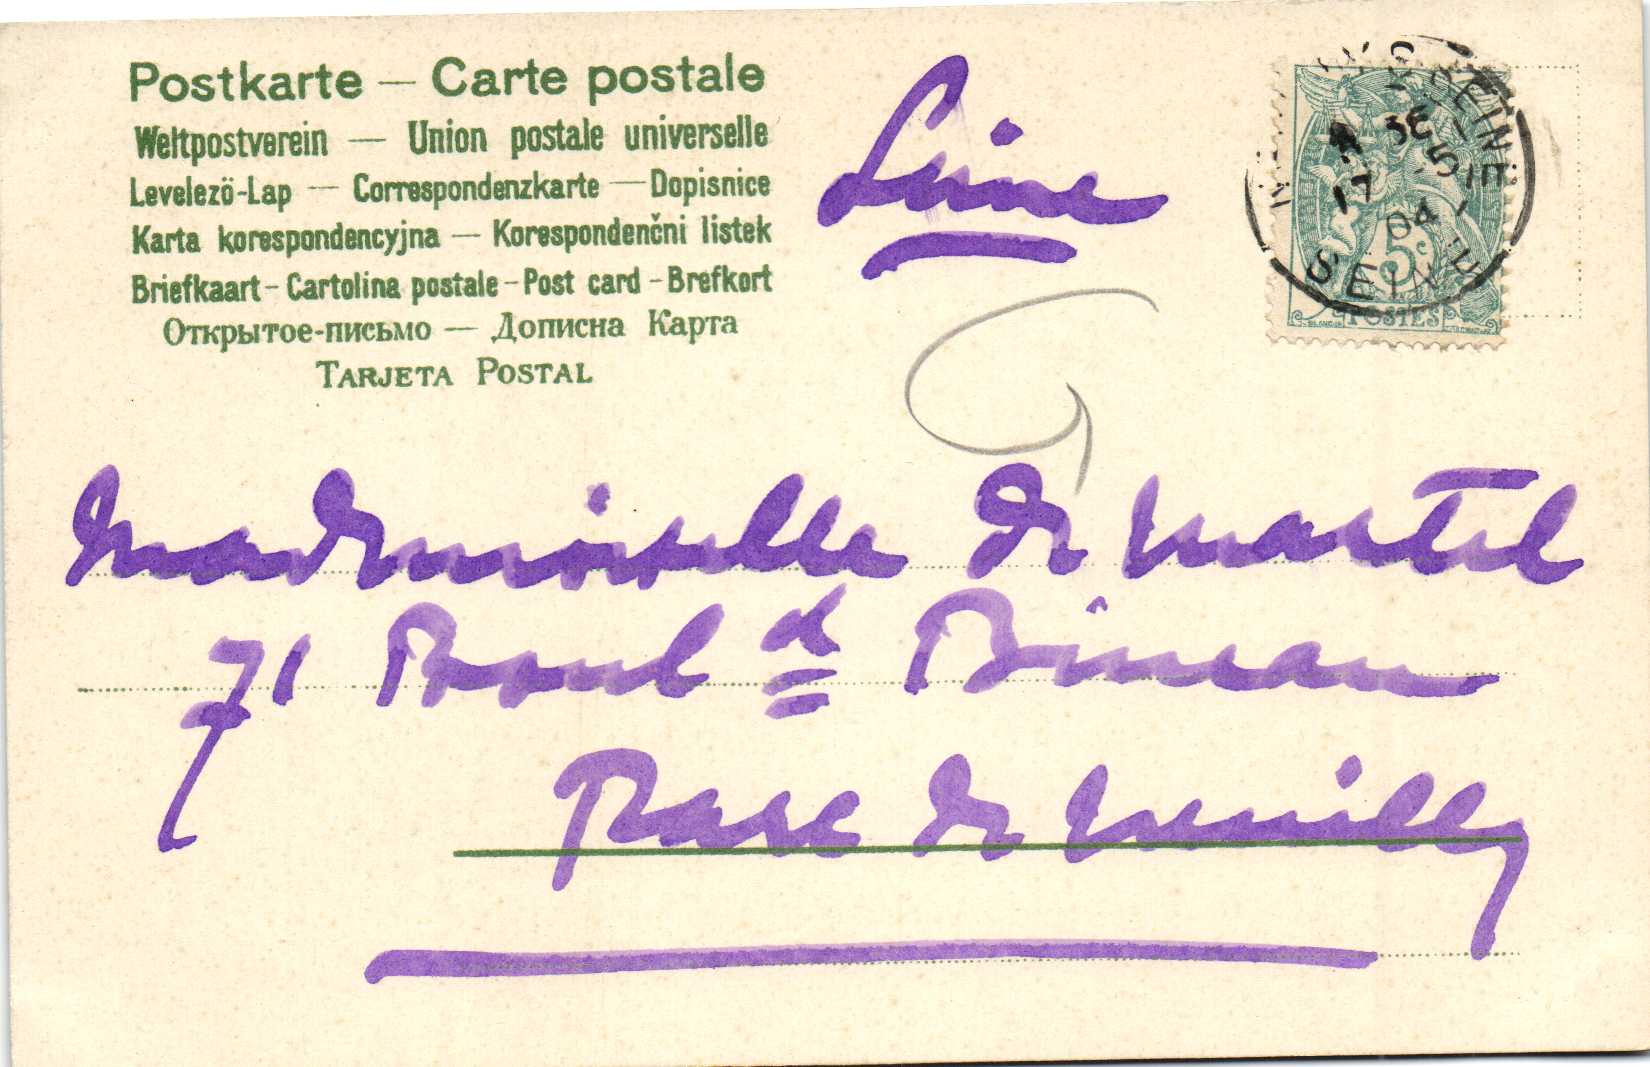 Postkarte — Carte postale
Weltpostverein — Union postale universelle
Levelező-Lap — Correspondenzkarte — Dopisnice
Karta korespondencyjna — Korespondenčni listek
Briefkaart - Cartolina postale - Post card - Brefkort
Открытое-письмо — Дописна Карта
TARJETA POSTAL
Seine
17 5
04
SEINE
5c
POSTES
Mademoiselle de Martel
71 Boul d Bineau
Parc de Neuilly